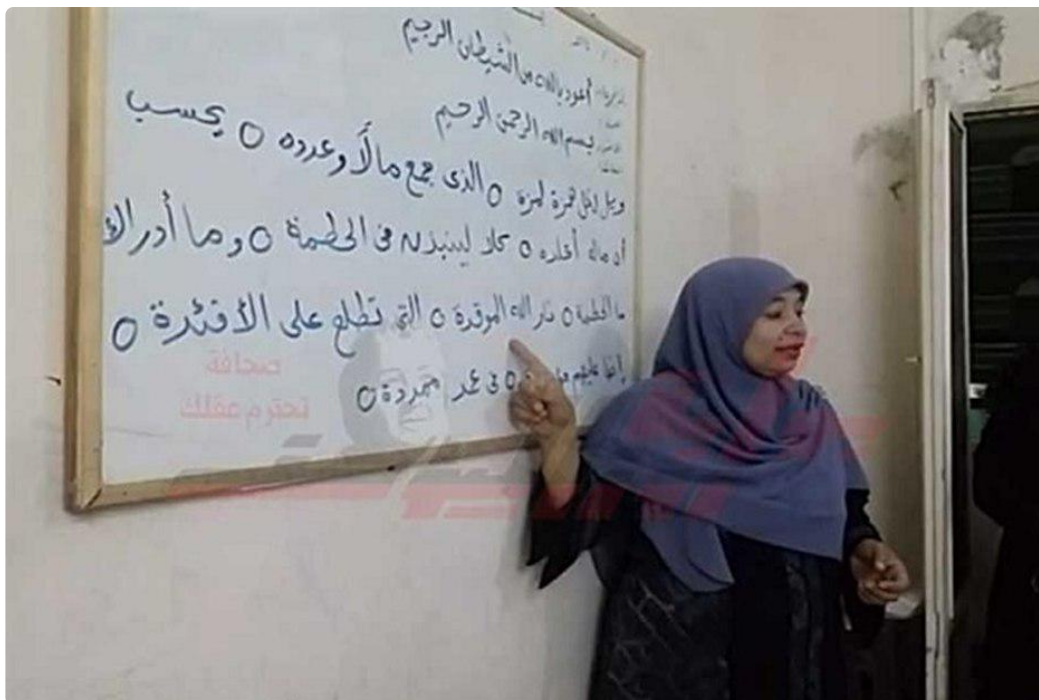 أعوذ بالله من الشيطان الرجيم
بسم الله الرحمن الرحيم
ويل لكل همزة لمزة ○ الذى جمع مالاً وعدده ○ يحسب
أن ماله أخلده ○ كلا لينبذن فى الحطمة ○ وما أدراك
ما الحطمة ○ نار الله الموقدة ○ التى تطلع على الأفئدة ○
إنها عليهم ○ فى عمد ممددة ○
صحافة
تحترم عقلك